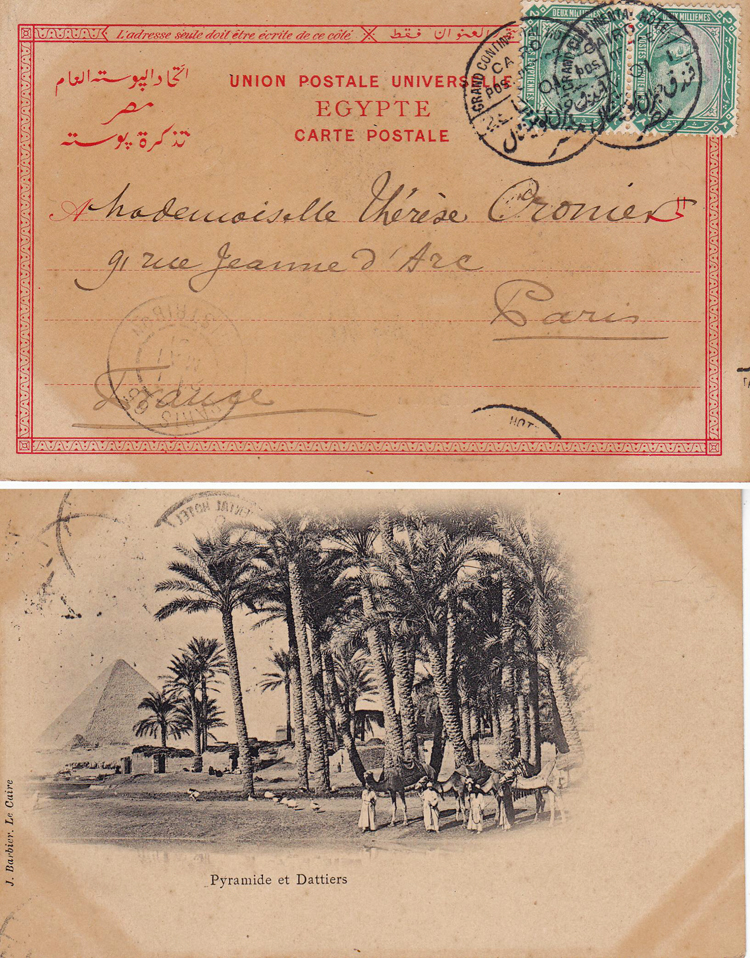 L'adresse seule doit être écrite de ce côté العنوان فقط
DEUX MILLIEMES
2 MILLIEMES
GRAND CONTIN
CAIRO
UNION POSTALE UNIVERSELLE
EGYPTE
CARTE POSTALE
اتحاد البوسته العام
مصر
تذكرة بوسته
A Mademoiselle Thérèse Cronier الى
91 rue Jeanne d'Arc
Paris
France
HOT
RIAL HOTEL
J. Barbier, Le Caire
Pyramide et Dattiers